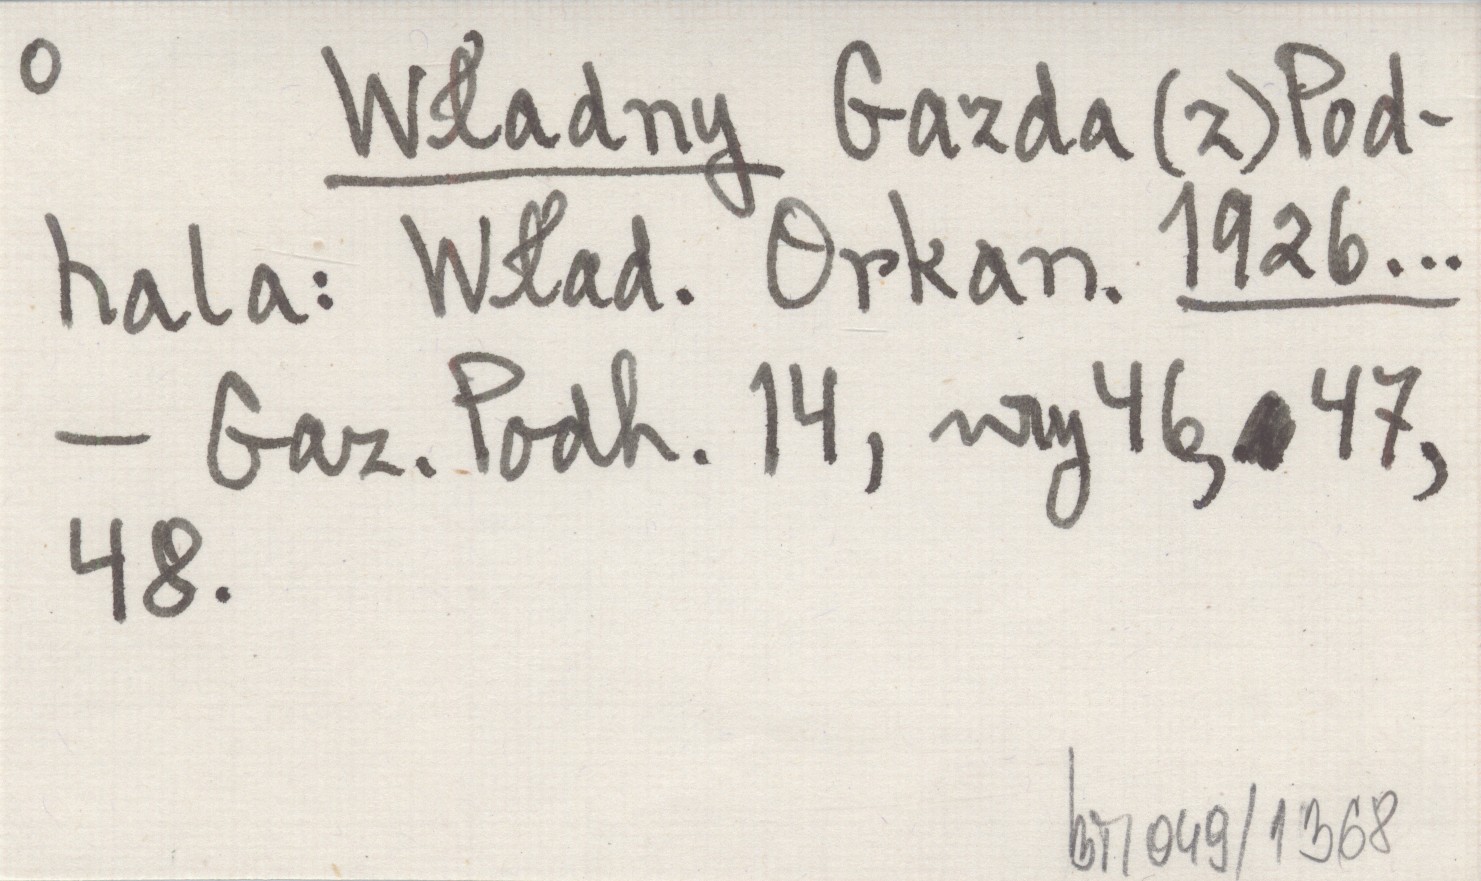 o Władny Gazda (z) Pod-
hala: Wład. Orkan. 1926...
— Gaz. Podh. 14, nry 46, 47,
48.
049/1368